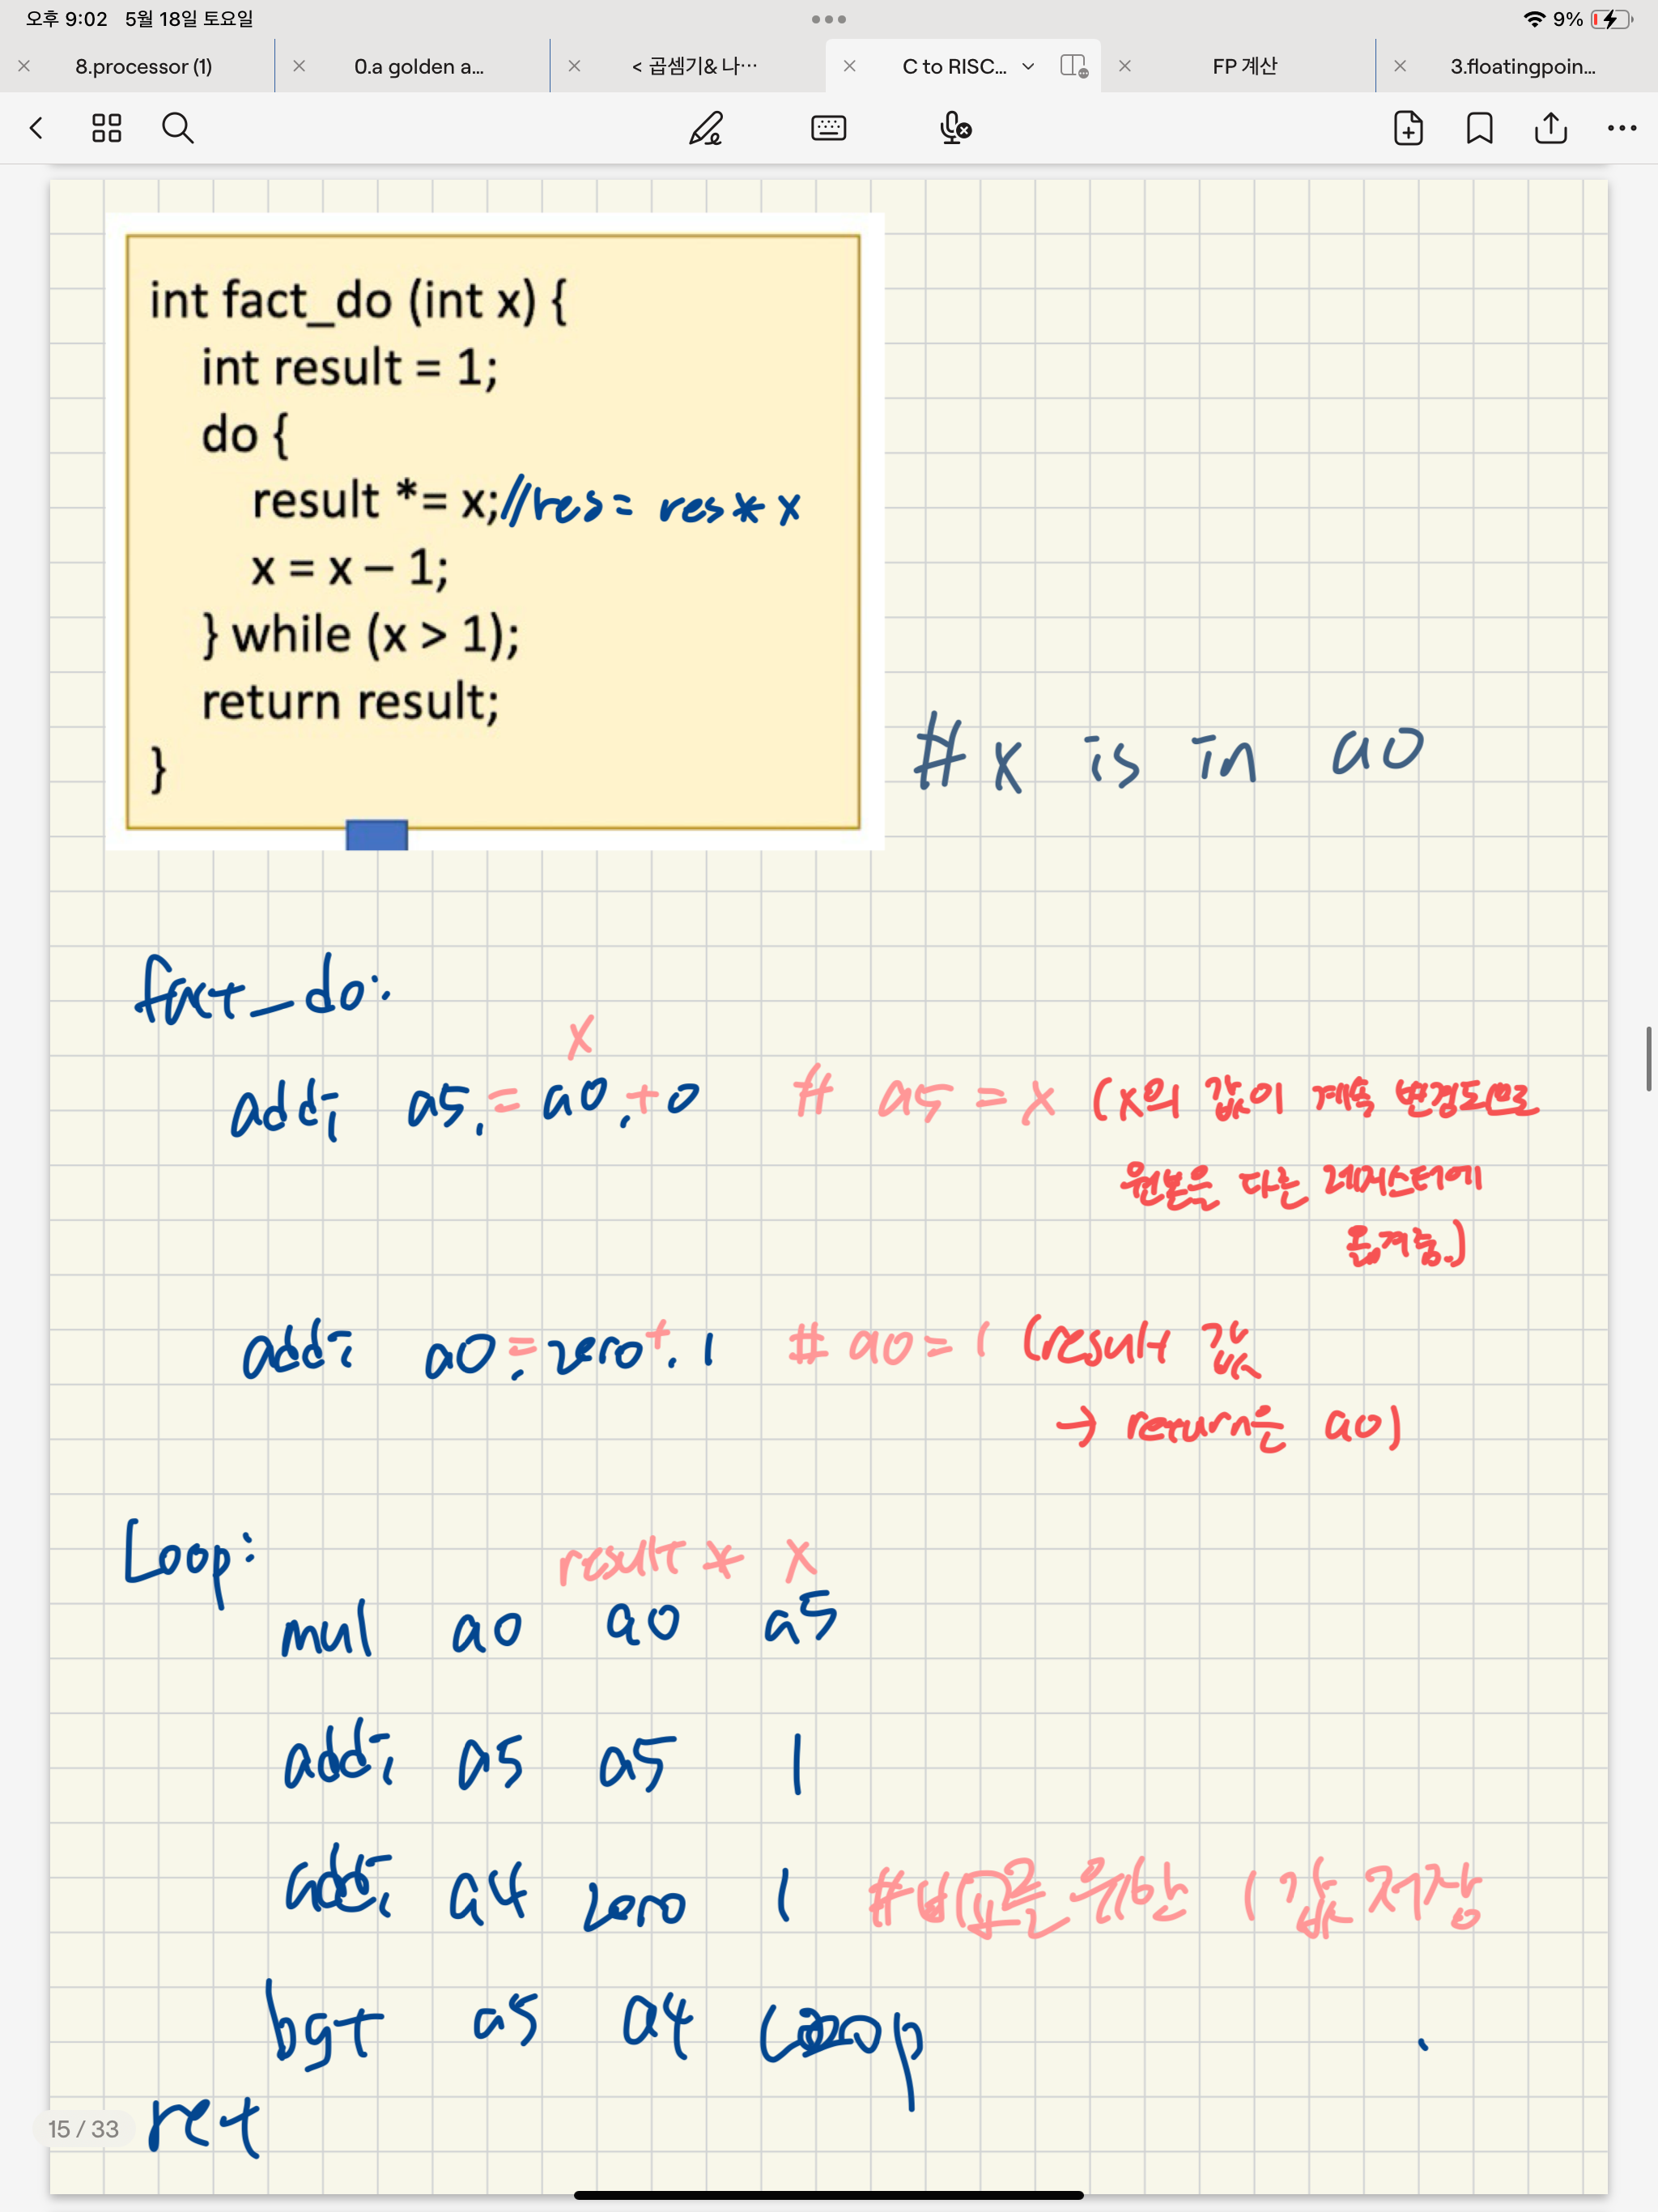 오후 9:02 5월 18일 토요일
9%
8.processor (1)
0.a golden a...
< 곱셈기& 나...
C to RISC...
FP 계산
3.floatingpoin...
int fact_do (int x) {
int result = 1;
do {
result *= x; //res = res * x
x = x – 1;
} while (x > 1);
return result;
}
# x is in a0
fact_do:
x
addi a5, = a0, + 0 # a5 = x (x의 값이 계속 변경되므로
원본은 다른 레지스터에
옮겨줌.)
addi a0, = zero, + 1 # a0 = 1 (result 값
→ return은 a0)
Loop:
result * x
mul a0 a0 a5
addi a5 a5 1
addi a4 zero 1 #비교를 위한 1 값 저장
bgt a5 a4 Loop
ret
15 / 33